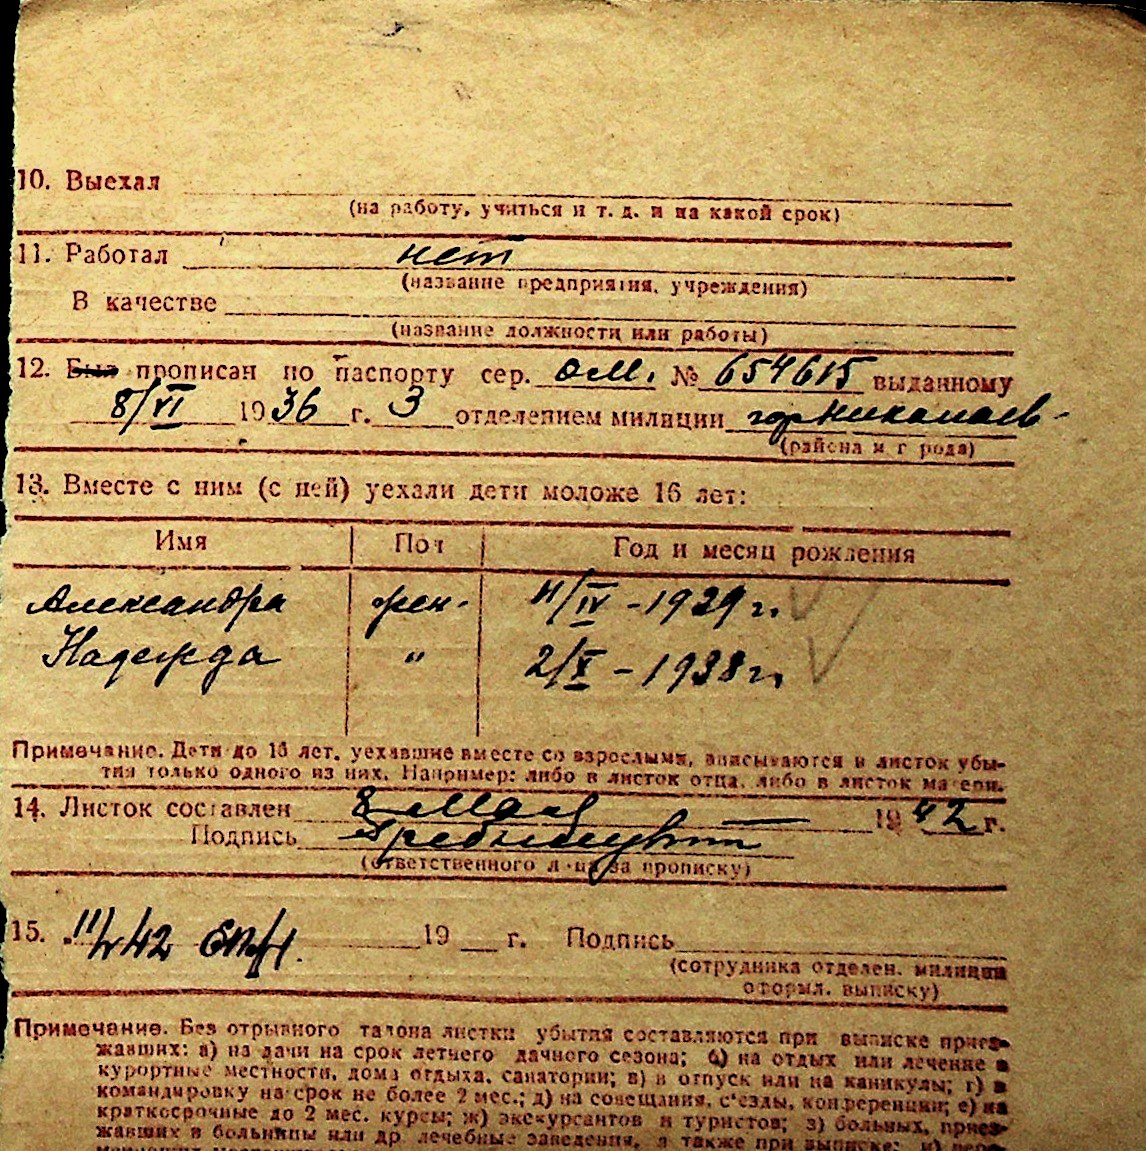 10. Выехал
(на работу, учиться и т. д. и на какой срок)
11. Работал нет
(название предприятия, учреждения)
В качестве
(название должности или работы)
12. Был прописан по паспорту сер. ОМ. № 654615 выданному
8/VI 1936 г. 3 отделением милиции гор Николаев-
(района и города)
13. Вместе с ним (с ней) уехали дети моложе 16 лет:
Имя Пол Год и месяц рождения
Александра жен. 11/IV - 1929 г.
Надежда " 2/X - 1938 г.
Примечание. Дети до 16 лет, уехавшие вместе со взрослыми, вписываются в листок убы-
тия только одного из них. Например: либо в листок отца, либо в листок матери.
14. Листок составлен 8 Мая 1942 г.
Подпись
(ответственного лица за прописку)
15. 11/V 42 19 г. Подпись
(сотрудника отделен. милиции
оформл. выписку)
Примечание. Без отрывного талона листки убытия составляются при выписке приез-
жавших: а) на дачи на срок летнего дачного сезона; б) на отдых или лечение в
курортные местности, дома отдыха, санатории; в) в отпуск или на каникулы; г) в
командировку на срок не более 2 мес.; д) на совещания, с'езды, конференции; е) на
краткосрочные до 2 мес. курсы; ж) экскурсантов и туристов; з) больных, приез-
жавших в больницы или др. лечебные заведения, а также при выписке: и)